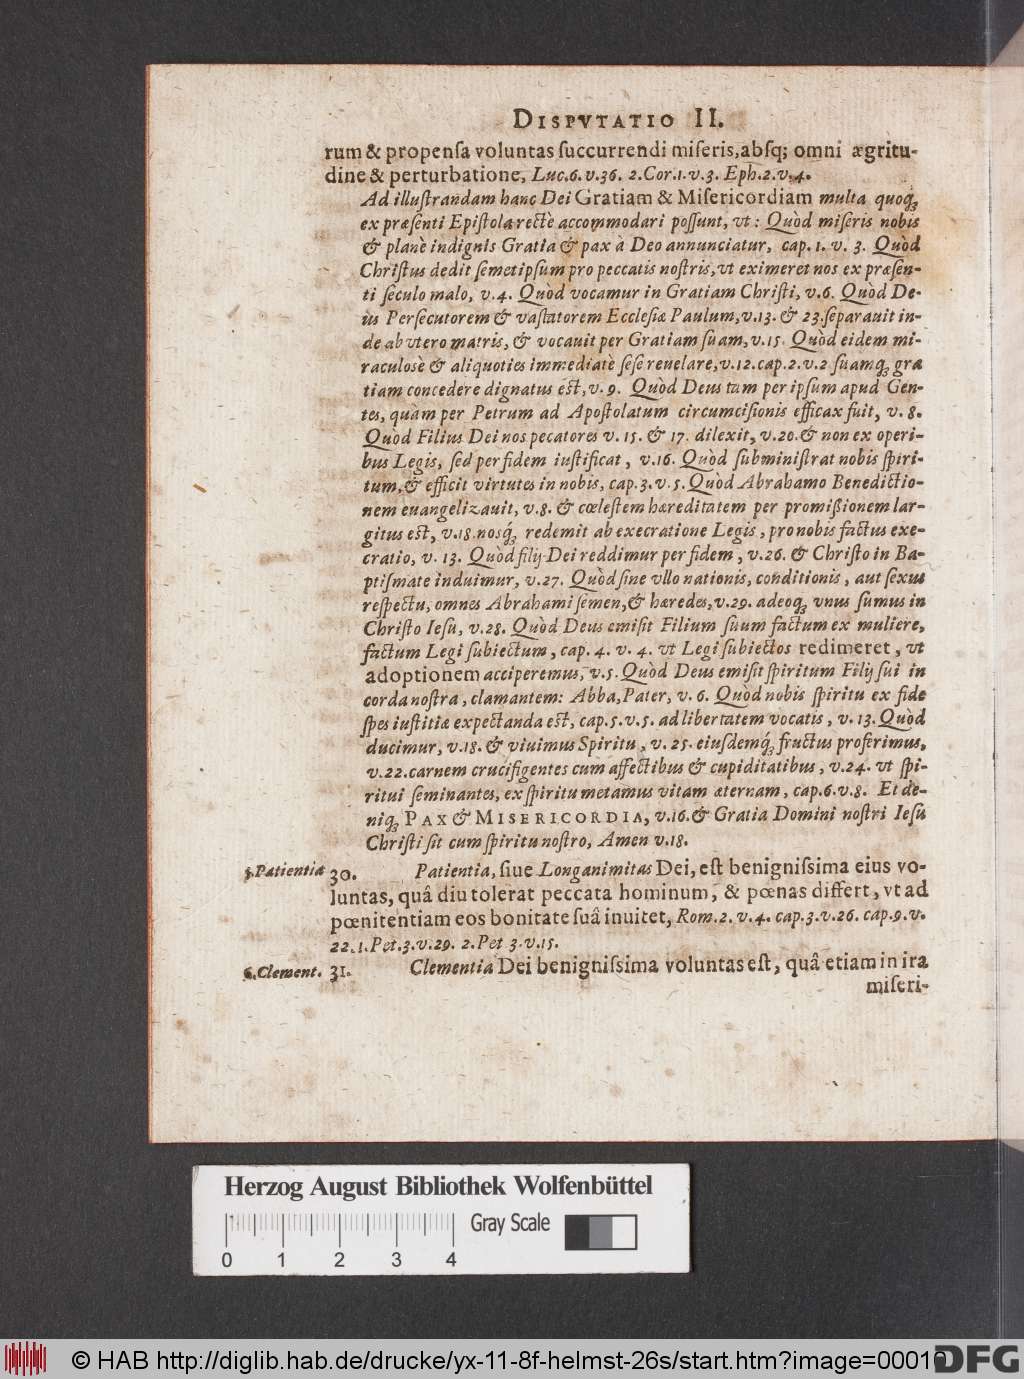 DISPVTATIO II.
rum & propenſa voluntas ſuccurrendi miſeris, abſq; omni ægritu-
dine & perturbatione, Luc.6.v.36. 2.Cor.1.v.3. Eph.2.v.4.
Ad illuſtrandam hanc Dei Gratiam & Miſericordiam multa quoq́
ex præſenti Epiſtola rectè accommodari poſſunt, vt: Quòd miſeris nobis
& planè indignis Gratia & pax à Deo annunciatur, cap. 1. v. 3. Quòd
Chriſtus dedit ſemetipſum pro peccatis noſtris, vt eximeret nos ex præſen-
ti ſeculo malo, v.4. Quòd vocamur in Gratiam Chriſti, v.6. Quòd De-
us Perſecutorem & vaſtatorem Eccleſiæ Paulum, v.13. & 23. ſeparauit in-
de ab vtero matris, & vocauit per Gratiam ſuam, v.15. Quòd eidem mi-
raculosè & aliquoties immediatè ſeſe reuelare, v.12. cap.2. v.2 ſuamq́ gra
tiam concedere dignatus eſt, v.9. Quòd Deus tam per ipſum apud Gen-
tes, quàm per Petrum ad Apoſtolatum circumciſionis efficax fuit, v.8.
Quòd Filius Dei nos pecatores v. 15. & 17. dilexit, v.20. & non ex operi-
bus Legis, ſed per fidem iuſtificat, v.16. Quòd ſubminiſtrat nobis ſpiri-
tum, & efficit virtutes in nobis, cap.3. v.5. Quòd Abrahamo Benedictio-
nem euangelizauit, v.8. & cœleſtem hæreditatem per promißionem lar-
gitus eſt, v.18. nosq́ redemit ab execratione Legis, pro nobis factus exe-
cratio, v. 13. Quòd filij Dei reddimur per fidem, v.26. & Chriſto in Ba-
ptiſmate induimur, v.27. Quòd ſine vllo nationis, conditionis, aut ſexus
reſpectu, omnes Abrahami ſemen, & hæredes, v.29. adeoq́ vnus ſumus in
Chriſto Ieſu, v.28. Quòd Deus emiſit Filium ſuum factum ex muliere,
factum Legi ſubiectum, cap. 4. v. 4. vt Legi ſubiectos redimeret, vt
adoptionem acciperemus, v.5. Quòd Deus emiſit ſpiritum Filij ſui in
corda noſtra, clamantem: Abba, Pater, v. 6. Quòd nobis ſpiritu ex fide
ſpes iuſtitiæ expectanda eſt, cap.5. v.5. ad libertatem vocatis, v. 13. Quòd
ducimur, v.18. & viuimus Spiritu, v. 25. eiusdemq́ fructus proferimus,
v.22. carnem crucifigentes cum affectibus & cupiditatibus, v.24. vt ſpi-
ritui ſeminantes, ex ſpiritu metamus vitam æternam, cap.6. v.8. Et de-
niq́ PAX & MISERICORDIA, v.16. & Gratia Domini noſtri Ieſu
Chriſti ſit cum ſpiritu noſtro, Amen v.18.
5.Patientia 30. Patientia, ſiue Longanimitas Dei, eſt benigniſsima eius vo-
luntas, quâ diu tolerat peccata hominum, & pœnas differt, vt ad
pœnitentiam eos bonitate ſuâ inuitet, Rom.2. v.4. cap.3. v.26. cap.9. v.
22. 1.Pet.3. v.29. 2.Pet 3. v.15.
6.Clement. 31. Clementia Dei benigniſsima voluntas eſt, quâ etiam in ira
miſeri-
Herzog August Bibliothek Wolfenbüttel
Gray Scale
0 1 2 3 4
© HAB http://diglib.hab.de/drucke/yx-11-8f-helmst-26s/start.htm?image=00010
DFG